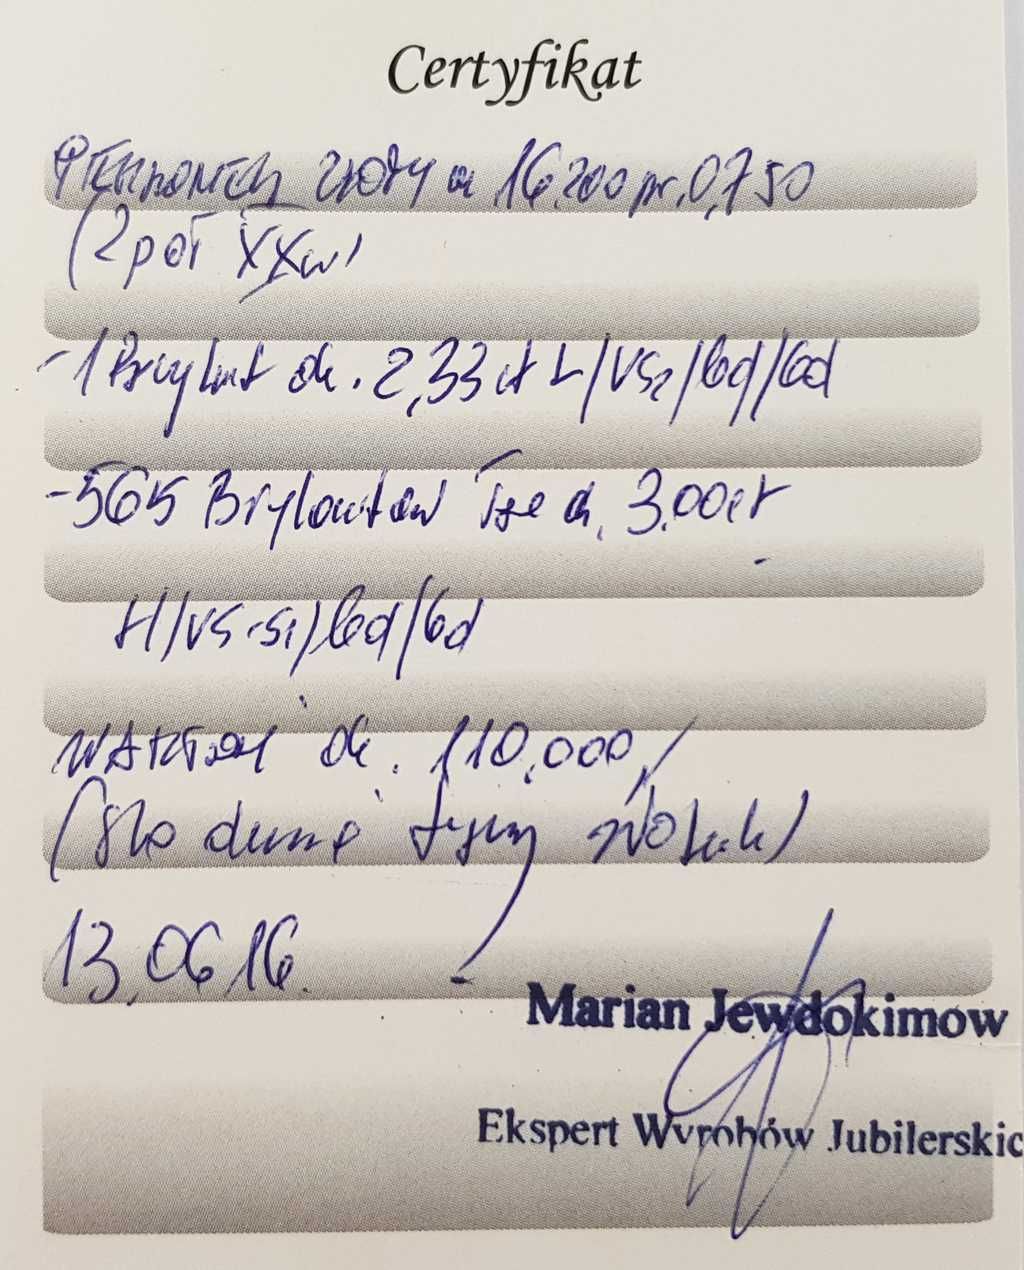 Certyfikat
Pierścionek złoty m 16.200 pr. 0,750
(2 poł XXw)
- 1 Brylant ok. 2,33 ct L/VS2/Gd/Gd
- 565 Brylantów ok. 3.00ct
H/VS-SI/Gd/Gd
WARTość ok. 110,000,
(Sto tysięcy złotych)
13.06 16.
Marian Jewdokimow
Ekspert Wyrobów Jubilerskic